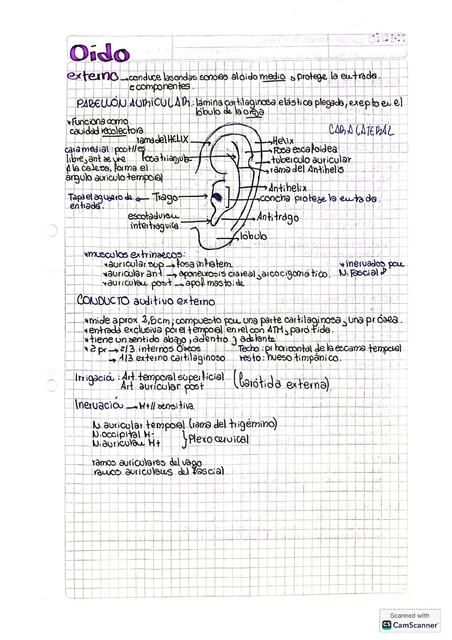 Oido
externo → conduce las ondas sonoras al oido medio y protege la entrada.
2 componentes.
PABELLÓN AURICULAR: lámina cartilaginosa elástica plegada, exepto en el
lóbulo de la oreja
*Funciona como
cavidad recolectora
CARA LATERAL
rama del HELIX
Helix
cara medial: post
Fosa escafoidea
libre, ant se une
fosa triangular
tuberculo auricular
a la cabeza, forma el
rama del Antihelix
angulo auriculo temporal
Antihelix
Tapa el agujero de
entrada.
Trago
concha protege la entrada.
escotadura
intertraguia
Antitrago
lóbulo
*musculos extrinsecos:
*auricular sup → fosa intratem
*inervados por
*auricular ant → aponeurosis craneal y arco cigomático.
N. Fascial
*auricular post → apof mastoide
CONDUCTO auditivo externo
*mide aprox 2,5cm; compuesto por una parte cartilaginosa y una p ósea.
*entrada exclusiva por el temporal en rel con ATM y parotida.
*tiene un sentido abajo, adentro y adelante
*2 pr → 2/3 internos óseos
Techo: p horizontal de la escama temporal
→ 1/3 externo cartilaginoso
resto: hueso timpánico.
Irrigación: Art. temporal superficial
Art. auricular post
(Carótida externa)
Inervación → Mt// sensitiva.
N. auricular temporal (rama del trigémino)
N. occipital M-
N. auricular M+
} Plexo cervical
ramos auriculares del vago
ramos auriculares del fascial
Scanned with
CS CamScanner